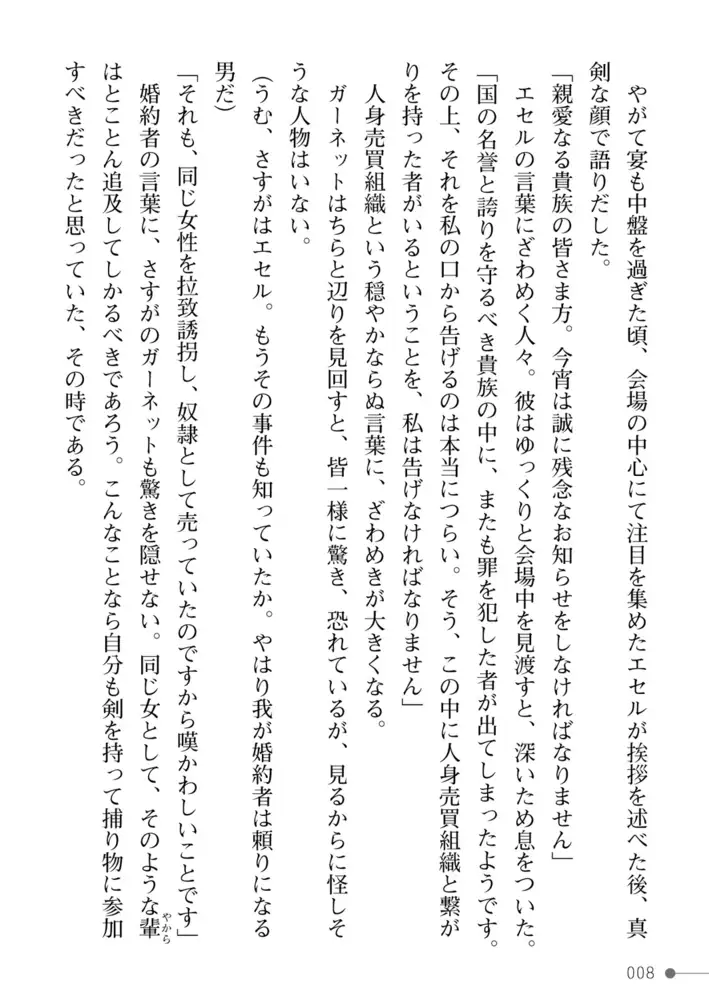 やがて宴も中盤を過ぎた頃、会場の中心にて注目を集めたエセルが挨拶を述べた後、真
剣な顔で語りだした。
「親愛なる貴族の皆さま方。今宵は誠に残念なお知らせをしなければなりません」
エセルの言葉にざわめく人々。彼はゆっくりと会場中を見渡すと、深いため息をついた。
「国の名誉と誇りを守るべき貴族の中に、またも罪を犯した者が出てしまったようです。
その上、それを私の口から告げるのは本当につらい。そう、この中に人身売買組織と繋が
りを持った者がいるということを、私は告げなければなりません」
人身売買組織という穏やかならぬ言葉に、ざわめきが大きくなる。
ガーネットはちらと辺りを見回すと、皆一様に驚き、恐れているが、見るからに怪しそ
うな人物はいない。
(うむ、さすがはエセル。もうその事件も知っていたか。やはり我が婚約者は頼りになる
男だ)
「それも、同じ女性を拉致誘拐し、奴隷として売っていたのですから嘆かわしいことです」
婚約者の言葉に、さすがのガーネットも驚きを隠せない。同じ女として、そのような輩
やから
はとことん追及してしかるべきであろう。こんなことなら自分も剣を持って捕り物に参加
すべきだったと思っていた、その時である。
008